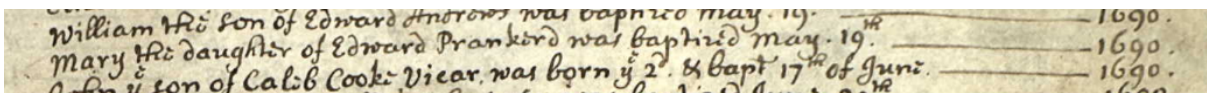 William the son of Edward Andrews was baptized May. 19. 1690.
Mary the daughter of Edward Prankerd was baptized May. 19th. 1690.
John ye son of Caleb Cooke Vicar, was born ye 2d. & bapt 17th of June. 1690.